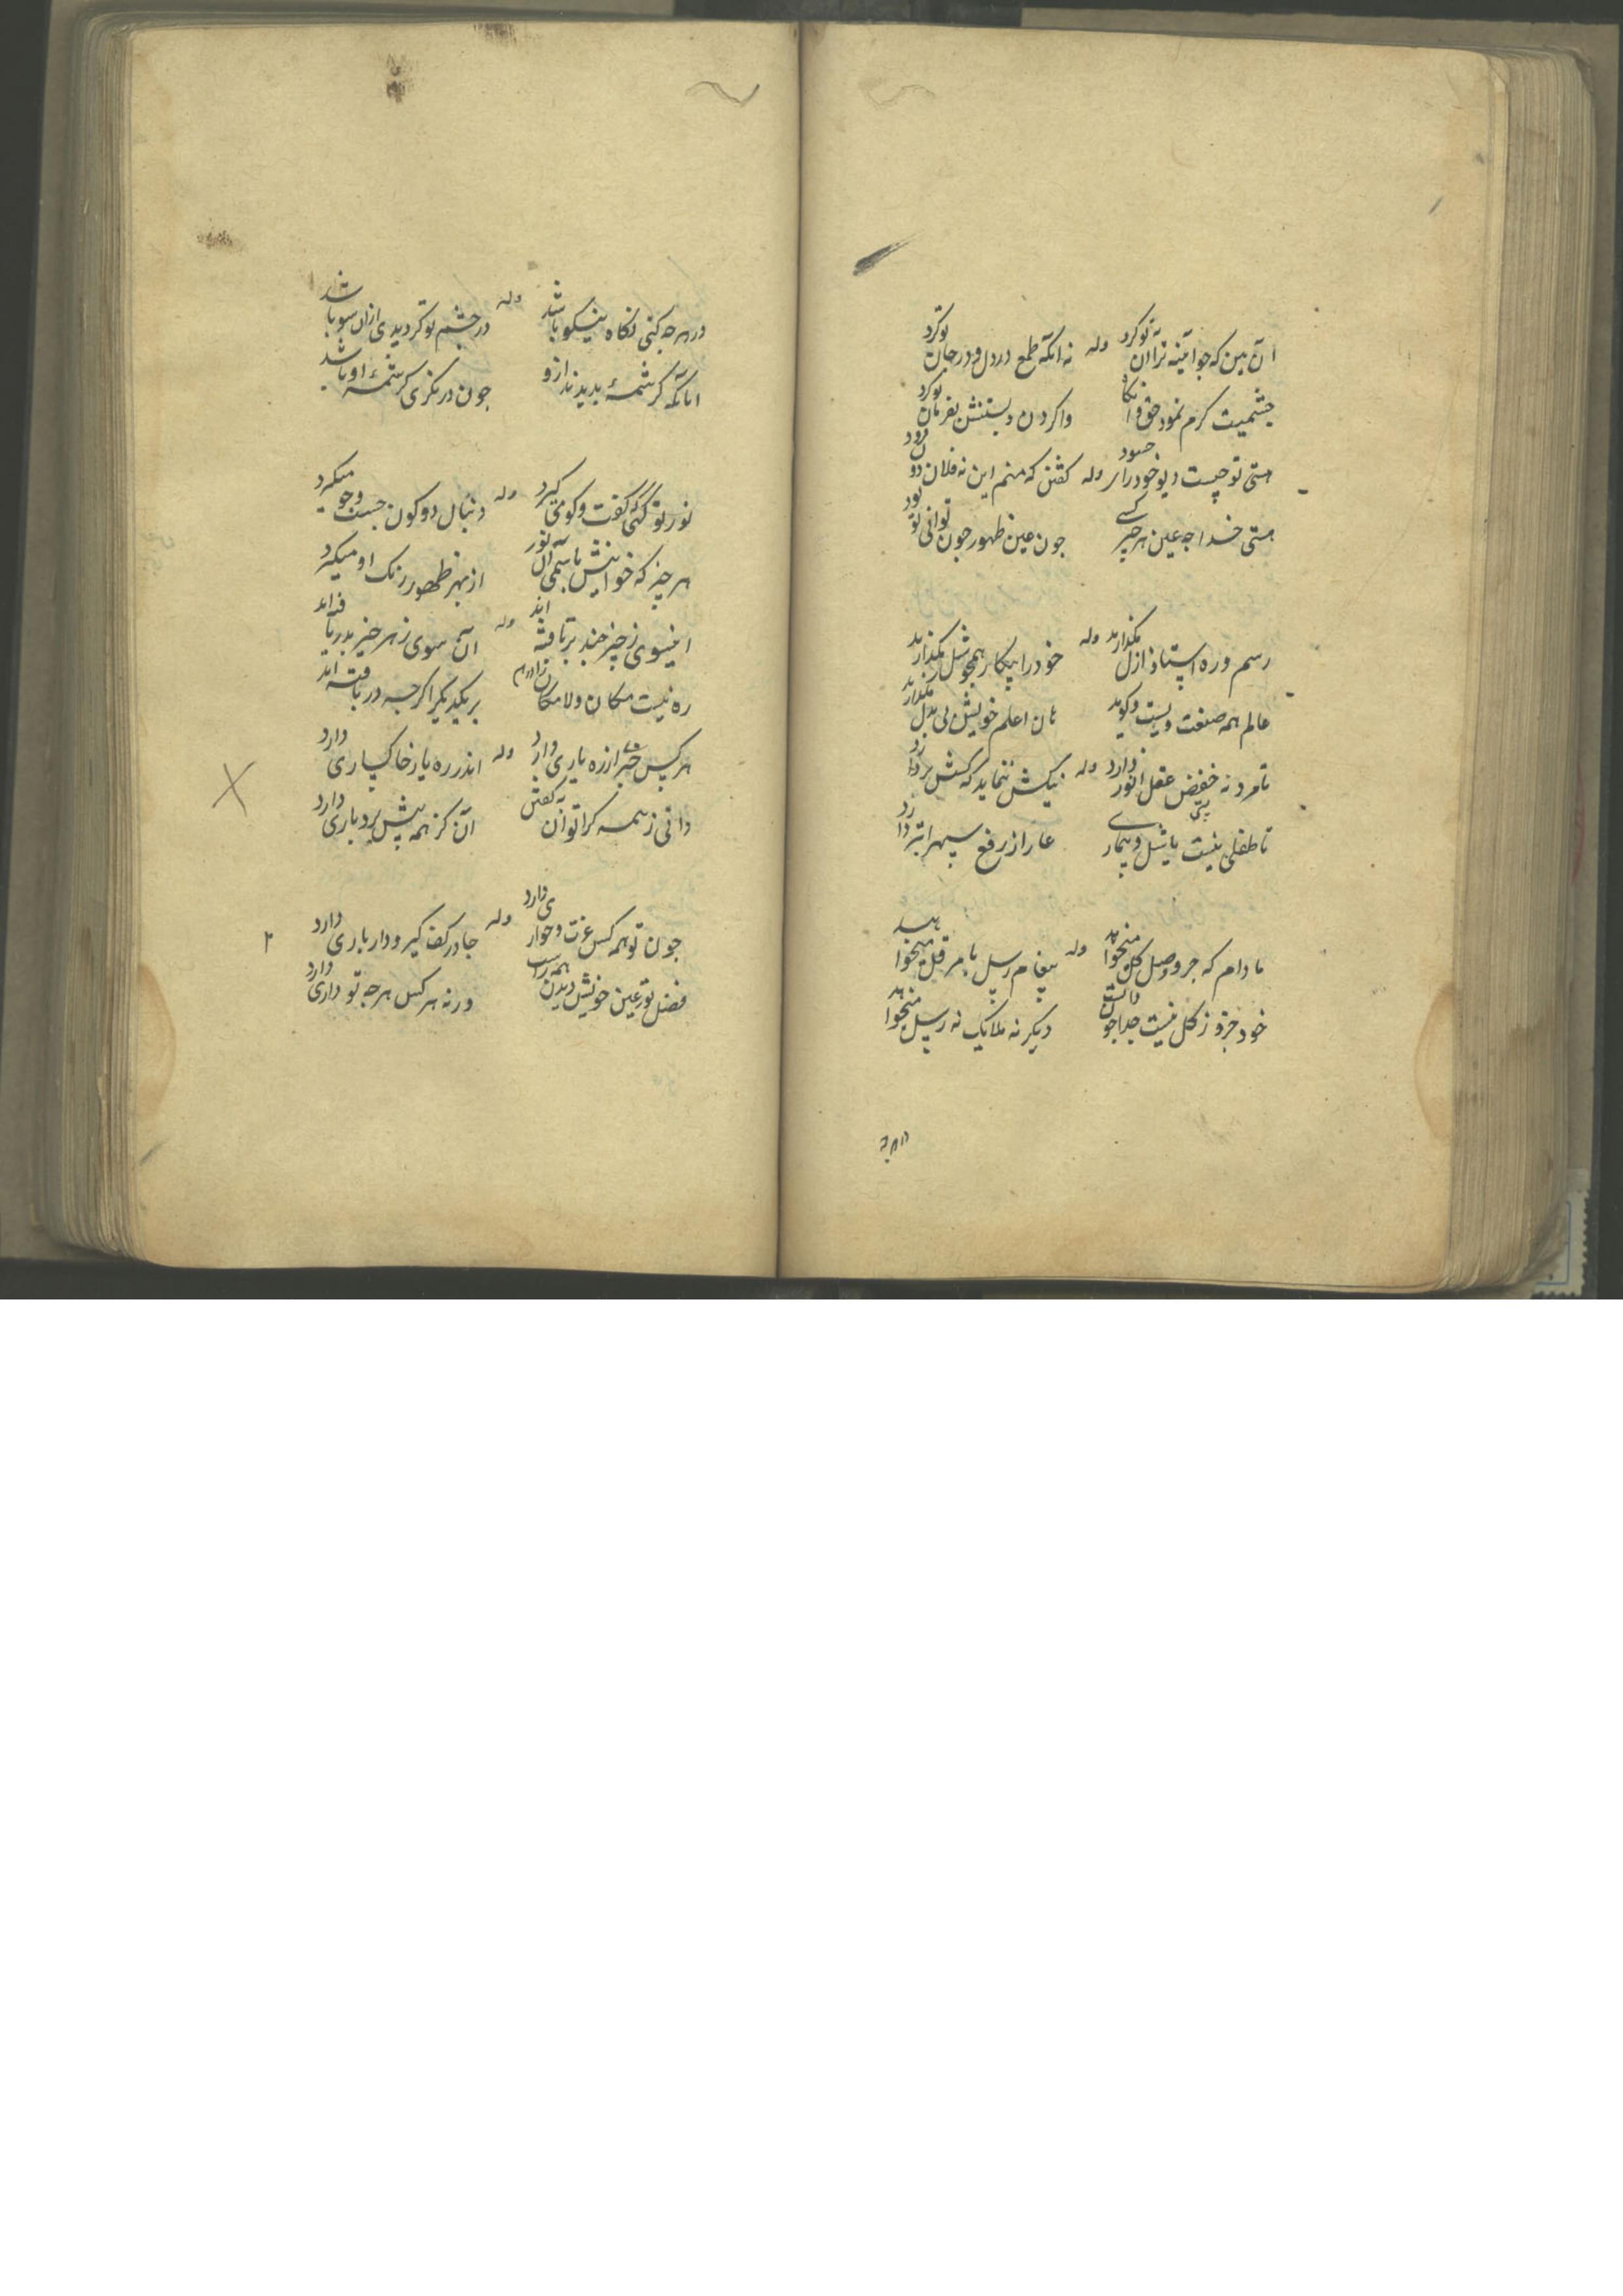 آن بین که جو آینه ترا دن به تو کرد وله نه انکه طمع در دل و در جان تو کرد
چشمیت کرم نمود حق و انکا واکردن و بستنش بفرمان تو کرد
هستی تو چیست دیو خود را حسود وله کفتن که منم این نه فلان دو
هستی خدا جه عین هر چیز کسی جون عین ظهور جون توانی تو بود
رسم و ره استاد ازل مکذارید وله خود را بیکار همجو شل مکذارید
عالم همه صنعت ویست و کوید هان اعلم خویش بی بدل مکذارید
تا مرد نه خفض عقل انور دارد وله نیکش ننماید که کشش بر دارد
تا طفلی نیست با شل و بیمار عار از رفع سپهر ابتر دارد
مادام که جزو وصل کل میخواهد وله پیغام رسل بامر قل میخواهد
خود جزو ز کل نیست جدا جون دانست دیکر نه ملایک نه رسل میخواهد
در هر جه کنی نکاه نیکو باشد وله در چشم تو کر دیدی ازان سو باشد
اما که کرشمهٔ بدیدند ازو جون در نکری کرشمهٔ او باشد
نور تو کهی کفت و کوی کیرد وله دنبال دو کون جست و جو میکیرد
هر چیز که خوانیش باسمی آن نور از بهر ظهور رنک او میکیرد
اینسوی ز چیز چند برتافته اند وله آن سوی ز هر چیز بدریافته اند
ره نیست مکان و لامکان را از هم بر یکدیکر اکر جه دریافته اند
هر کس خبر از ره یاری دارد وله اندر ره یار خاکساری دارد
دانی ز همه کرا توان به کفتن آن کز همه پیش بردباری دارد
جون تو همه کس عزت و خواری دارد وله جا در کف کیر و دار باری دارد
فضل تو ز عین خویش دیدن همه راست ورنه هر کس هر جه تو داری دارد
۲